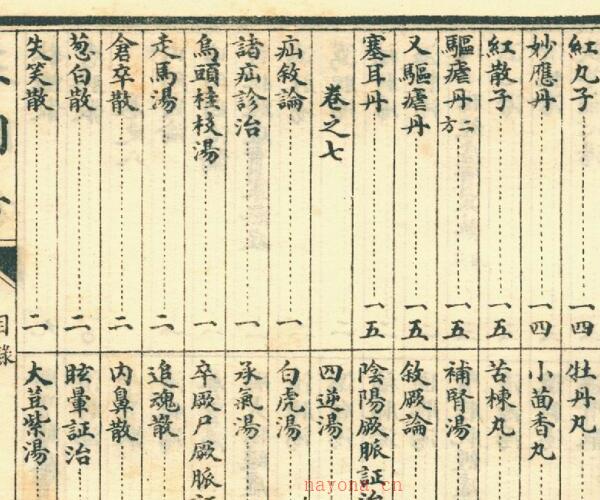 紅丸子 一四
妙應丹 一四
紅散子 一五
驅瘧丹二方 一五
又驅瘧丹 一五
塞耳丹 一五
卷之七
疝敘論 一
諸疝診治 一
烏頭桂枝湯 一
走馬湯 二
倉卒散 二
葱白散 二
失笑散 二
牡丹丸
小茴香丸
苦楝丸
補腎湯
敘厥論
陰陽厥脈証治
四逆湯
白虎湯
承氣湯
卒厥尸厥脈証
追魂散
內鼻散
眩暈証治
大荳紫湯
目錄
nayona.cn